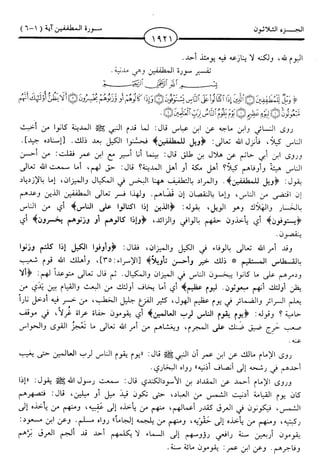 الجـــزء الثـلاثـون
سـورة المطففين آية (١-٦)
١٩٢١
اليوم لله، ولكنه لا ينازعه فيه يومئذ أحد.
تفسير سورة المطففين وهي مدنية.
﴿ وَيْلٌ لِلْمُطَفِّفِينَ ۝١ الَّذِينَ إِذَا اكْتَالُوا عَلَى النَّاسِ يَسْتَوْفُونَ ۝٢ وَإِذَا كَالُوهُمْ أَوْ وَزَنُوهُمْ يُخْسِرُونَ ۝٣ أَلَا يَظُنُّ أُولَئِكَ أَنَّهُمْ
مَبْعُوثُونَ ۝٤ لِيَوْمٍ عَظِيمٍ ۝٥ يَوْمَ يَقُومُ النَّاسُ لِرَبِّ الْعَالَمِينَ ۝٦ ﴾
روى النسائي وابن ماجه عن ابن عباس قال: لما قدم النبي ﷺ المدينة كانوا من أخبث
الناس كيلاً، فأنزل الله تعالى: ﴿ويل للمطففين﴾ فحسنوا الكيل بعد ذلك. [إسناده جيد].
وروى ابن أبي حاتم عن هلال بن طلق قال: بينما أنا أسير مع ابن عمر فقلت: من أحسن
الناس هيئة وأوفاهم كيلاً؟ أهل مكة أو أهل المدينة؟ قال: حق لهم، أما سمعت الله تعالى
يقول: ﴿ويل للمطففين﴾. والمراد بالتطفيف ههنا البخس في المكيال والميزان، إما بالازدياد
إن اقتضى من الناس، وإما بالنقصان إن قضاهم. ولهذا فسر تعالى المطففين الذين وعدهم
بالخسار والهلاك وهو الويل، بقوله: ﴿الذين إذا اكتالوا على الناس﴾ أي من الناس
﴿يستوفون﴾ أي يأخذون حقهم بالوافي والزائد، ﴿وإذا كالوهم أو وزنوهم يخسرون﴾ أي
ينقصون.
وقد أمر الله تعالى بالوفاء في الكيل والميزان، فقال: ﴿وأوفوا الكيل إذا كلتم وزنوا
بالقسطاس المستقيم ذلك خير وأحسن تأويلاً﴾ [الإسراء: ٣٥]. وأهلك الله قوم شعيب
ودمرهم على ما كانوا يبخسون الناس في الميزان والمكيال. ثم قال تعالى متوعداً لهم: ﴿ألا
يظن أولئك أنهم مبعوثون. ليوم عظيم﴾ أي أما يخاف أولئك من البعث والقيام بين يدي من
يعلم السرائر والضمائر في يوم عظيم الهول، كثير الفزع جليل الخطب، من خسر فيه أدخل ناراً
حامية؟ وقوله: ﴿يوم يقوم الناس لرب العالمين﴾ أي يقومون حفاة عراة غرلاً، في موقف
صعب حرج ضيق ضنك على المجرم، ويغشاهم من أمر الله تعالى ما تعجز القوى والحواس
عنه.
روى الإمام مالك عن ابن عمر أن النبي ﷺ قال: «يوم يقوم الناس لرب العالمين حتى يغيب
أحدهم في رشحه إلى أنصاف أذنيه» رواه البخاري.
وروى الإمام أحمد عن المقداد بن الأسود الكندي قال: سمعت رسول الله ﷺ يقول: «إذا
كان يوم القيامة أدنيت الشمس من العباد، حتى تكون قيد ميل أو ميلين، قال: فتصهرهم
الشمس، فيكونون في العرق كقدر أعمالهم، منهم من يأخذه إلى عقبيه، ومنهم من يأخذه إلى
ركبتيه، ومنهم من يأخذه إلى حقويه، ومنهم من يلجمه إلجاماً» رواه مسلم. وعن ابن مسعود:
يقومون أربعين سنة رافعي رؤوسهم إلى السماء لا يكلمهم أحد قد ألجم العرق برهم
وفاجرهم. وعن ابن عمر: يقومون مائة سنة.